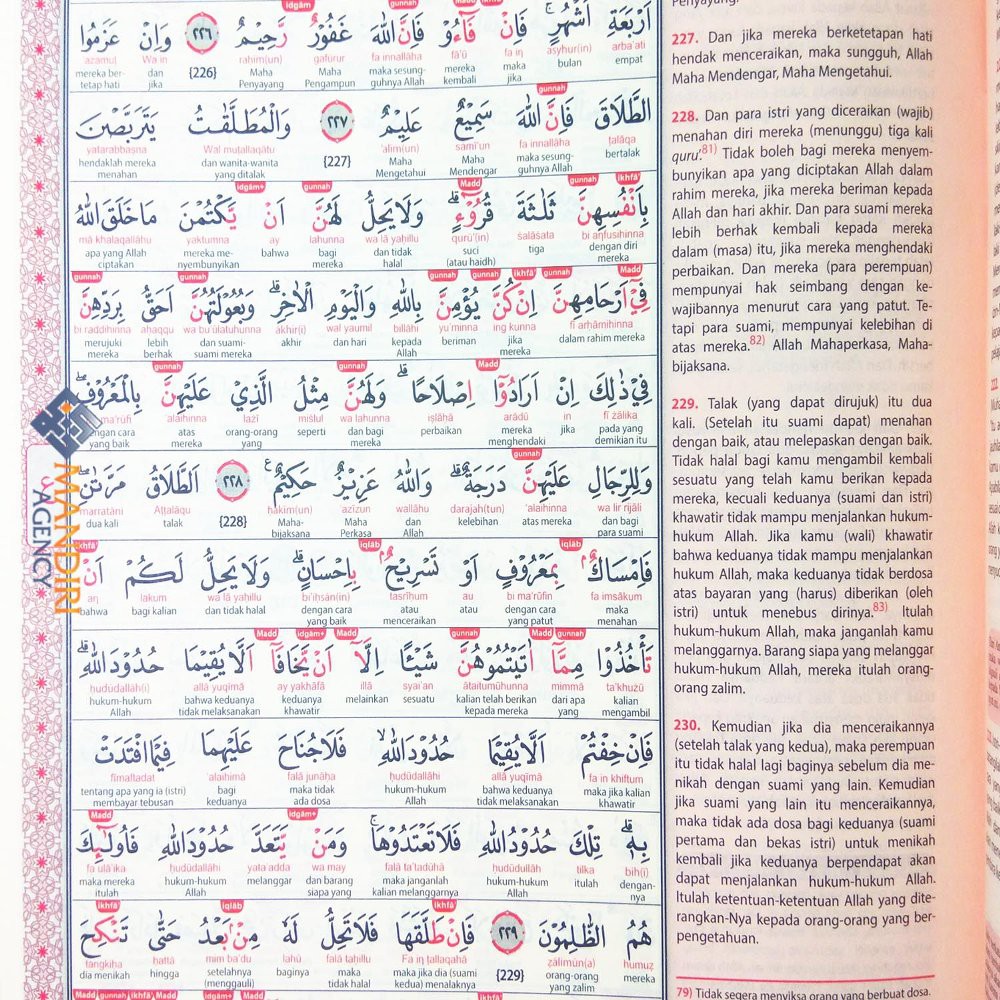 اَرْبَعَةِ اَشْهُرٍۚ فَاِنْ فَاۤءُوْ فَاِنَّ اللّٰهَ غَفُوْرٌ رَّحِيْمٌ ٢٢٦ وَاِنْ عَزَمُوا
arba‘ati asyhur(in) fa in fā'ū fa innallāha gafūrur rahīm(un) {226} Wa in azamuṭ
empat bulan maka jika mereka kembali maka sesungguhnya Allah Maha Pengampun Maha Penyayang dan jika mereka bertetap hati
الطَّلَاقَ فَاِنَّ اللّٰهَ سَمِيْعٌ عَلِيْمٌ ٢٢٧ وَالْمُطَلَّقٰتُ يَتَرَبَّصْنَ
ṭalāqa fa innallāha samī‘un ‘alīm(un) {227} Wal muṭallaqātu yatarabbaṣna
bertalak maka sesungguhnya Allah Maha Mendengar Maha Mengetahui dan wanita-wanita yang ditalak hendaklah mereka menahan
بِاَنْفُسِهِنَّ ثَلٰثَةَ قُرُوْۤءٍۗ وَلَا يَحِلُّ لَهُنَّ اَنْ يَّكْتُمْنَ مَا خَلَقَ اللّٰهُ
bi anfusihinna ṡalāṡata qurū'(in) wa lā yaḥillu lahunna ay yaktumna mā khalaqallāhu
dengan diri mereka tiga suci (atau haidh) dan tidak halal bagi mereka bahwa mereka menyembunyikan apa yang Allah ciptakan
فِيْٓ اَرْحَامِهِنَّ اِنْ كُنَّ يُؤْمِنَّ بِاللّٰهِ وَالْيَوْمِ الْاٰخِرِۗ وَبُعُوْلَتُهُنَّ اَحَقُّ بِرَدِّهِنَّ
fī arḥāmihinna ing kunna yu'minna billāhi wal yaumil ākhir(i) wa bu‘ūlatuhunna aḥaqqu bi raddihinna
dalam rahim mereka jika mereka beriman kepada Allah dan hari akhir dan suami-suami mereka lebih berhak merujuki mereka
فِيْ ذٰلِكَ اِنْ اَرَادُوْٓا اِصْلَاحًاۗ وَلَهُنَّ مِثْلُ الَّذِيْ عَلَيْهِنَّ بِالْمَعْرُوْفِۖ
fī żālika in arādū iṣlāḥā wa lahunna miṡlul lażī ‘alaihinna
pada yang demikian itu jika mereka menghendaki perbaikan dan bagi mereka seperti orang-orang yang atas mereka yang baik
وَلِلرِّجَالِ عَلَيْهِنَّ دَرَجَةٌۗ وَاللّٰهُ عَزِيْزٌ حَكِيْمٌ ٢٢٨ اَلطَّلَاقُ مَرَّتٰنِۖ
wa lir rijāli ‘alaihinna darajah(tun) wallāhu azīzun ḥakīm(un) {228} Aṭṭalāqu marratāni
dan bagi para suami atas mereka kelebihan dan Allah Maha Perkasa Maha-bijaksana talak dua kali
فَاِمْسَاكٌۢ بِمَعْرُوْفٍ اَوْ تَسْرِيْحٌۢ بِاِحْسَانٍۗ وَلَا يَحِلُّ لَكُمْ اَنْ
fa imsākum bi ma‘rūfin au tasrīḥum bi'iḥsān(in) wa lā yaḥillu lakum an
maka menahan dengan cara yang patut atau atau menceraikan dengan cara yang baik dan tidak halal bagi kalian bahwa
تَأْخُذُوْا مِمَّآ اٰتَيْتُمُوْهُنَّ شَيْـًٔا اِلَّآ اَنْ يَّخَافَآ اَلَّا يُقِيْمَا حُدُوْدَ اللّٰهِۗ
ta'khużū mimmā ātaitumūhunna syai'an illā ay yakhāfā allā yuqīmā ḥudūdallāh(i)
kalian mengambil dari apa yang kalian telah berikan kepada mereka sesuatu melainkan keduanya khawatir bahwa keduanya tidak melaksanakan hukum-hukum Allah
فَاِنْ خِفْتُمْ اَلَّا يُقِيْمَا حُدُوْدَ اللّٰهِۙ فَلَا جُنَاحَ عَلَيْهِمَا فِيْمَا افْتَدَتْ
fa in khiftum allā yuqīmā ḥudūdallāhi falā junāha ‘alaihimā fīmaftadat
maka jika kalian khawatir bahwa keduanya tidak melaksanakan hukum-hukum Allah maka tidak ada dosa bagi keduanya tentang apa yang ia (istri) membayar tebusan
بِهٖۗ تِلْكَ حُدُوْدُ اللّٰهِ فَلَا تَعْتَدُوْهَاۚ وَمَنْ يَّتَعَدَّ حُدُوْدَ اللّٰهِ فَاُولٰۤىِٕكَ
bih(i) tilka ḥudūdullāhi falā ta‘tadūhā wa may yata‘adda ḥudūdallāhi fa ulā'ika
dengan-nya itulah hukum-hukum Allah maka janganlah kalian melanggarnya dan barang siapa yang melanggar hukum-hukum Allah maka mereka itulah
هُمُ الظّٰلِمُوْنَ ٢٢٩ فَاِنْ طَلَّقَهَا فَلَا تَحِلُّ لَهٗ مِنْۢ بَعْدُ حَتّٰى تَنْكِحَ
humuẓ ẓālimūn(a) {229} Fa in ṭallaqahā falā taḥillu lahū mim ba‘du ḥattā tangkiḥa
mereka orang-orang yang zalim maka jika dia (suami kedua) menalaknya maka tidak halal baginya setelahnya (menggauli) hingga dia menikah
MANDIRI
AGENCY
227. Dan jika mereka berketetapan hati
hendak menceraikan, maka sungguh, Allah
Maha Mendengar, Maha Mengetahui.
228. Dan para istri yang diceraikan (wajib)
menahan diri mereka (menunggu) tiga kali
quru'.81) Tidak boleh bagi mereka menyem-
bunyikan apa yang diciptakan Allah dalam
rahim mereka, jika mereka beriman kepada
Allah dan hari akhir. Dan para suami mereka
lebih berhak kembali kepada mereka
dalam (masa) itu, jika mereka menghendaki
perbaikan. Dan mereka (para perempuan)
mempunyai hak seimbang dengan ke-
wajibannya menurut cara yang patut. Te-
tapi para suami, mempunyai kelebihan di
atas mereka.82) Allah Mahaperkasa, Maha-
bijaksana.
229. Talak (yang dapat dirujuk) itu dua
kali. (Setelah itu suami dapat) menahan
dengan baik, atau melepaskan dengan baik.
Tidak halal bagi kamu mengambil kembali
sesuatu yang telah kamu berikan kepada
mereka, kecuali keduanya (suami dan istri)
khawatir tidak mampu menjalankan hukum-
hukum Allah. Jika kamu (wali) khawatir
bahwa keduanya tidak mampu menjalankan
hukum Allah, maka keduanya tidak berdosa
atas bayaran yang (harus) diberikan (oleh
istri) untuk menebus dirinya.83) Itulah
hukum-hukum Allah, maka janganlah kamu
melanggarnya. Barang siapa yang melanggar
hukum-hukum Allah, mereka itulah orang-
orang zalim.
230. Kemudian jika dia menceraikannya
(setelah talak yang kedua), maka perempuan
itu tidak halal lagi baginya sebelum dia me-
nikah dengan suami yang lain. Kemudian
jika suami yang lain itu menceraikannya,
maka tidak ada dosa bagi keduanya (suami
pertama dan bekas istri) untuk menikah
kembali jika keduanya berpendapat akan
dapat menjalankan hukum-hukum Allah.
Itulah ketentuan-ketentuan Allah yang dite-
rangkan-Nya kepada orang-orang yang ber-
pengetahuan.
79) Tidak segera menyiksa orang yang berbuat dosa.